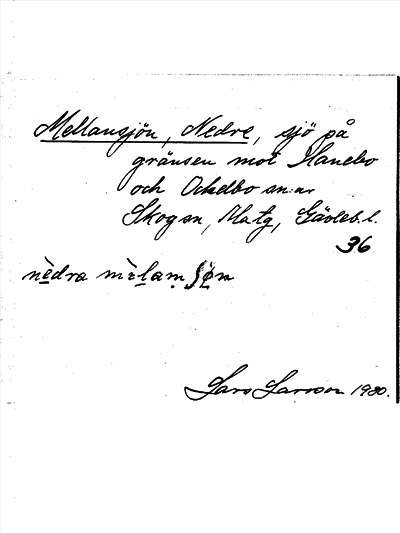 Mellansjön, Nedre, sjö på
gränsen mot Hanebo
och Ockelbo sn:ar
Skog sn, Ma tg, Gävleb. l.
36
nèdra mèlam ʃøn
Lars Larsson 1980.